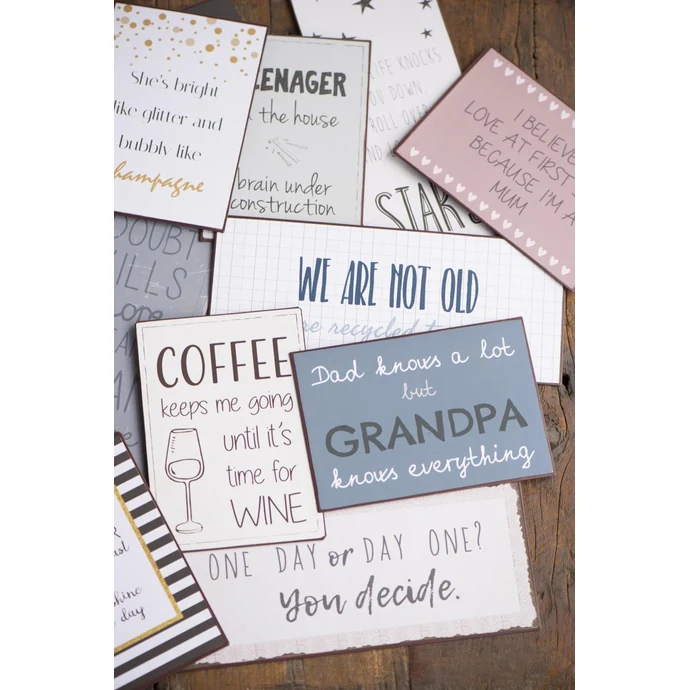 She's bright
like glitter and
bubbly like
champagne
ENAGER
the house
brain under
construction
LIFE KNOCKS
YOU DOWN,
ROLL OVER
STARS
I BELIEVE
LOVE AT FIRST
BECAUSE I'M A
MUM
DOUBT
WE ARE NOT OLD
recycled
COFFEE
keeps me going
until it's
time for
WINE
Dad knows a lot
but
GRANDPA
knows everything
ONE DAY or DAY ONE?
You decide.
day